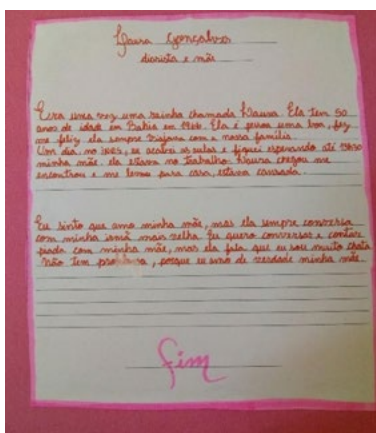 Laura Gonçalves
diarista e mãe
Era uma vez uma rainha chamada Laura. Ela tem 50
anos de idade em Bahia em 1966. Ela é pessoa uma boa, fez
me feliz ela sempre viajava com a nossa família.
Um dia, no INES, eu acabei as aulas e fiquei esperando até 13h30
minha mãe, ela estava no trabalho. Laura chegou me
encontrou e me levou para casa, estava cansada.
Eu sinto que amo minha mãe, mas ela sempre conversa
com minha irmã mais velha. Eu quero conversar e contar
piada com minha mãe, mas ela fala que eu sou muito chata
Não tem problema, porque eu amo de verdade minha mãe
Fim